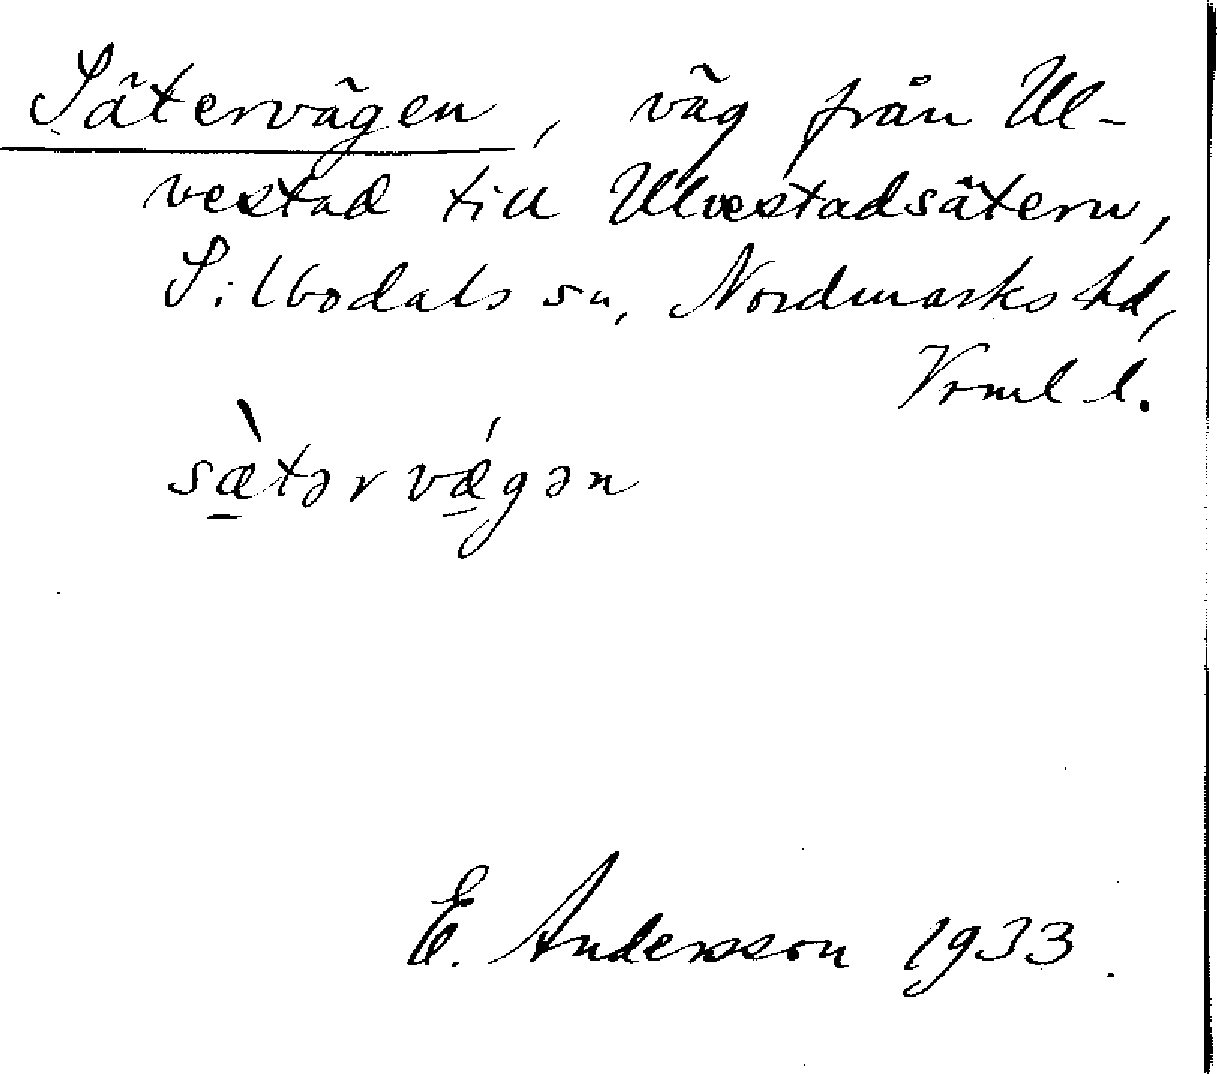 Sätervägen, väg från Ul-
vestad till Ulvestadsätern,
Silbodals sn, Nordmarks hd,
Vrml l.
sæ̱̀tərvǽ̱gən
E. Andersson 1933.